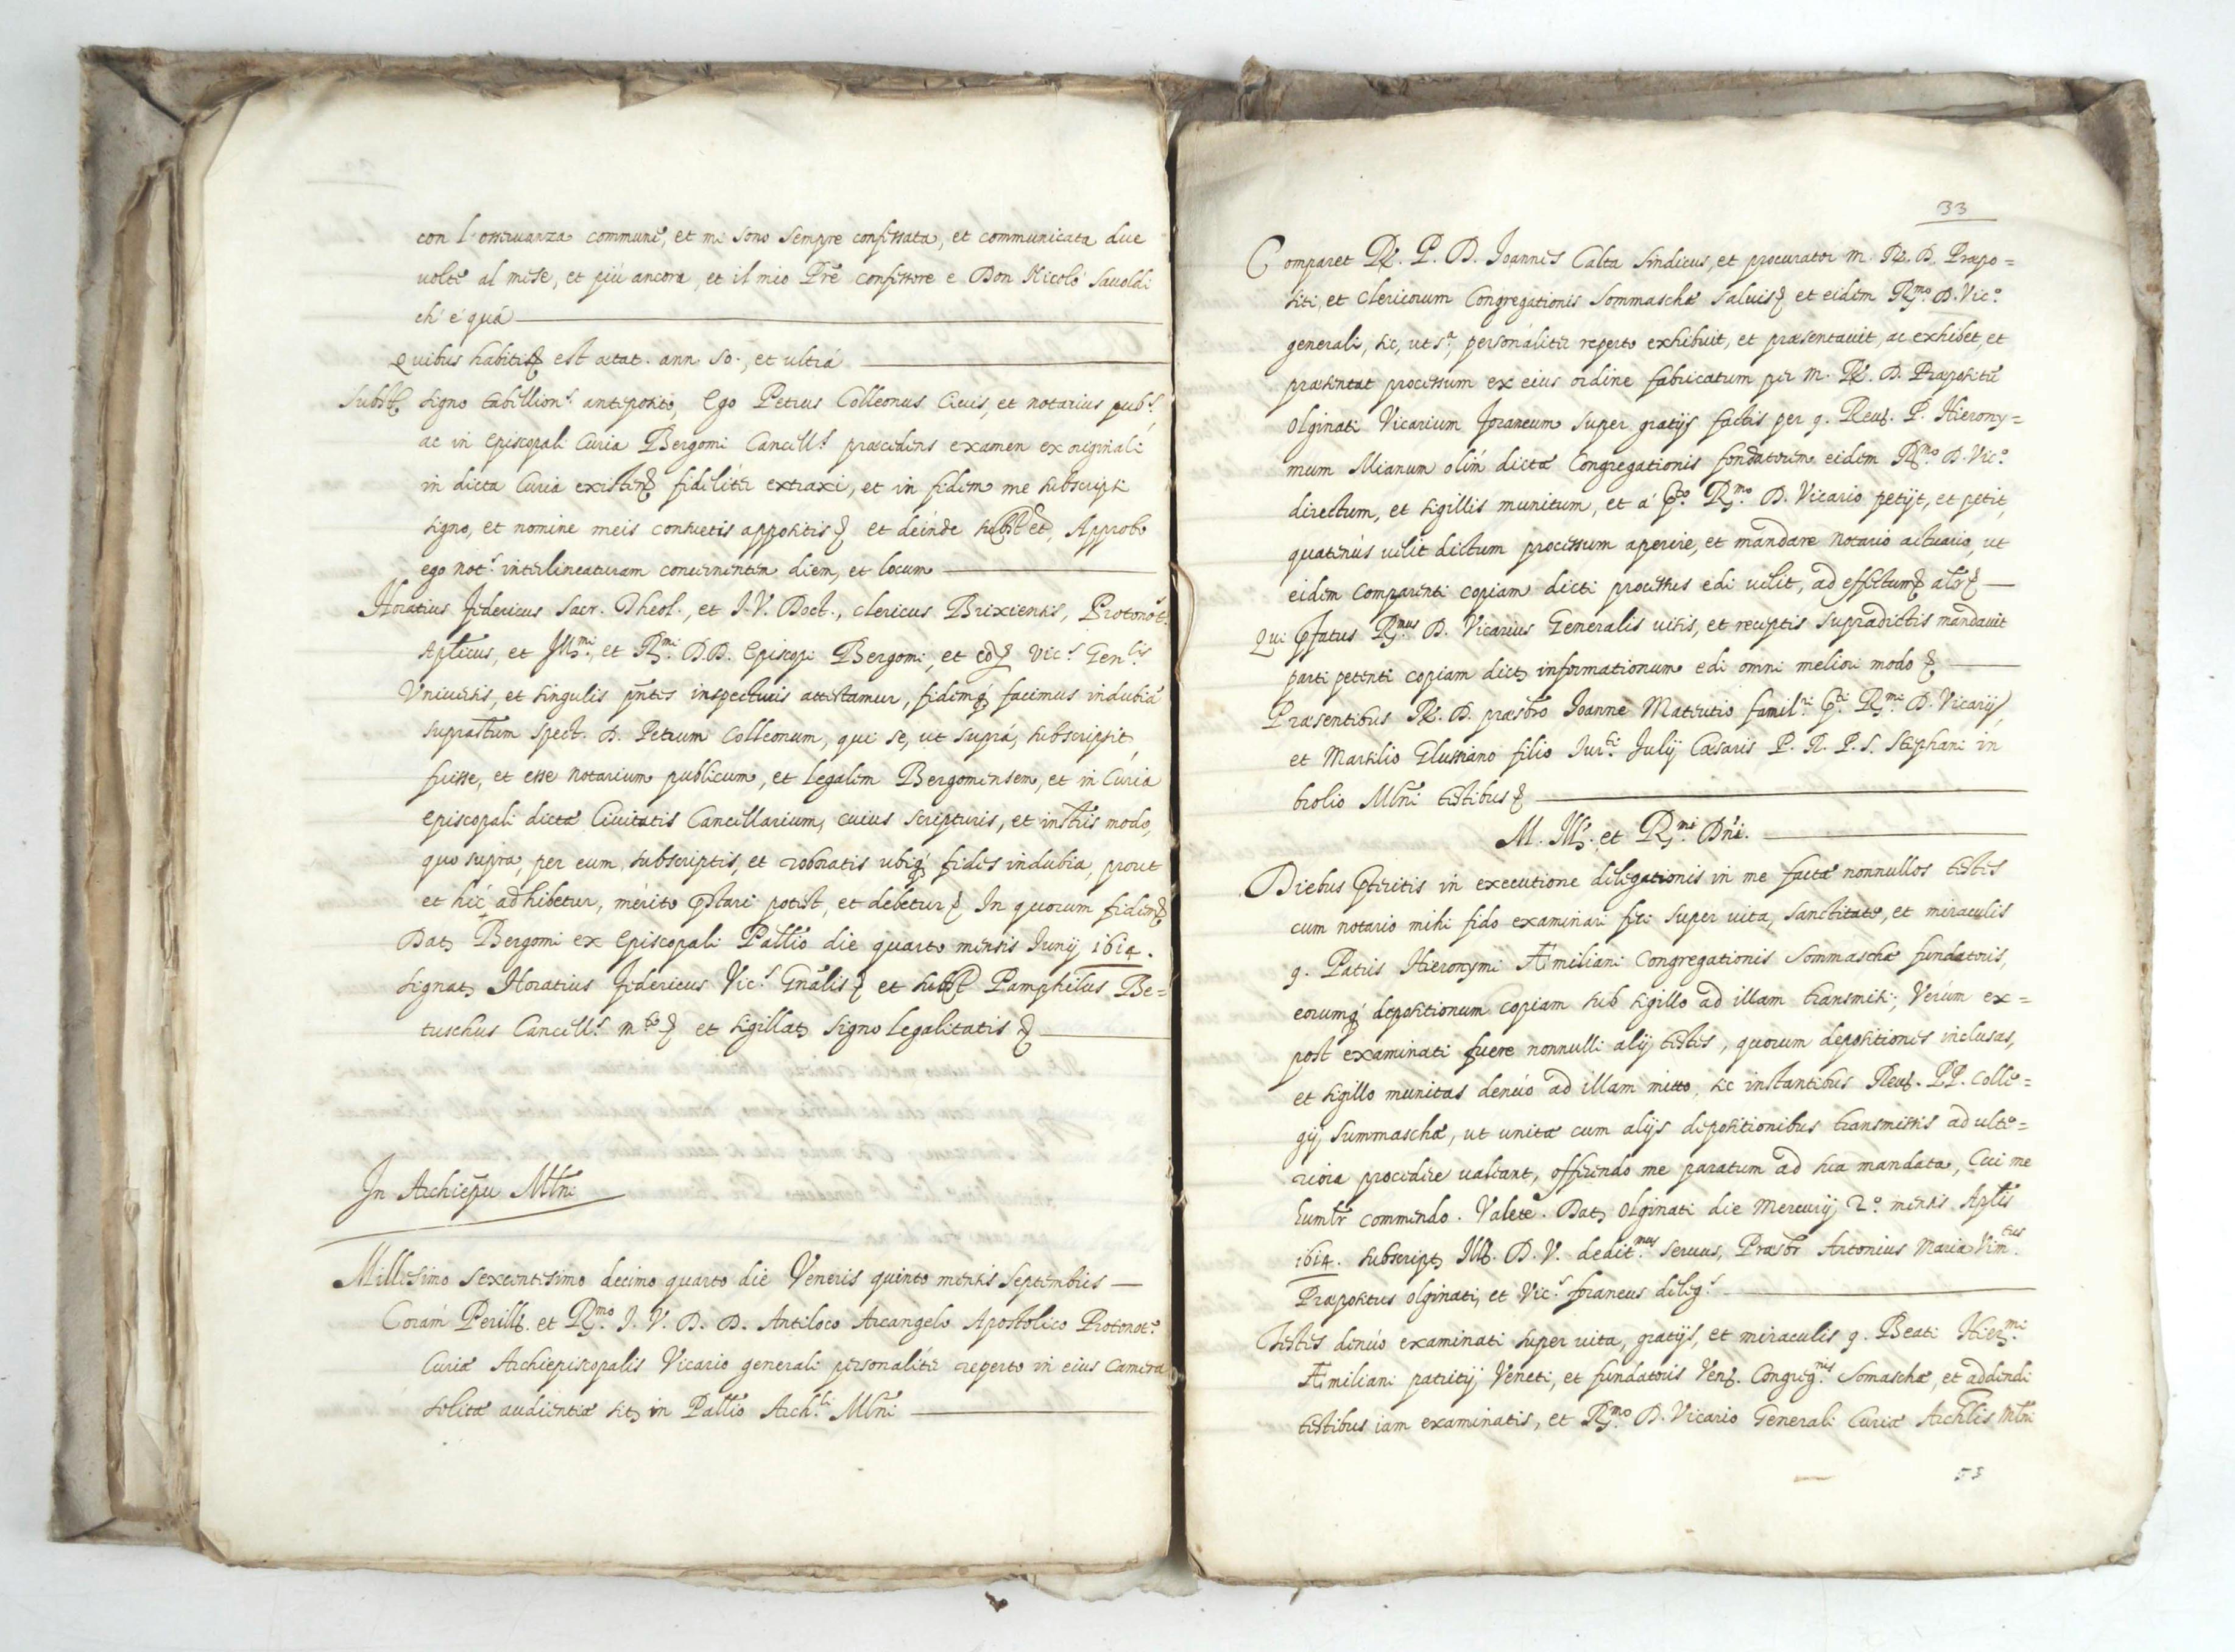 con l'osseruanza commune, et mi sono sempre confessata, et communicata due
uolte al mese, et più ancora, et il mio Prē confessore e Don Nicolò Sauoldi
ch' è quà
Quibus habitis est ætat. ann. 50., et ultrà
Subst. signo tabellion.s anteposito, Ego Petrus Colleonus Ciuis, et notarius pub.s,
ac in episcopali Curia Bergomi Cancell.s præcedens examen ex originali
in dicta Curia existen fideliter extraxi, et in fidem me subscripsi
signo, et nomine meis consuetis appositis et deinde subst et, Approbo
ego not.s interlineaturam concernentem diem, et locum
Horatius Federicus Sacr. Theol., et I. V. Doct., clericus Brixiensis, Protonot.
Aplicus, et Ill.mi, et R.mi D.D. Episcopi Bergomi, et co Vic.s Gen.lis
Vniuersis, et singulis pntes inspecturis attestamur, fidemq facimus indubiā
suprastum spect. D. Petrum Colleonum, qui se, ut suprà, subscripsit,
fuisse, et esse notarium publicum, et legalem Bergomensem, et in Curia
episcopali dictæ Ciuitatis Cancellarium, cuius scripturis, et instris modo,
quo supra, per eum subscriptis, et roboratis ubiq fides indubia, prout
et hic adhibetur, merito pstari potest, et debetur In quorum fidem
Dat Bergomi ex Episcopali Pallio die quarto mensis Iunij 1614.
signat Horatius Federicus Vic.s Gnalis et subst Pamphilus Be=
tuschus Cancell.s m.to et sigillat signo legalitatis
In Archiepu Mlni
Millesimo sexcentesimo decimo quarto die Veneris quinto mensis Septembris
Coràm Perill. et R.mo I. V. D. D. Antiloco Arcangelo Apostolico Protonot.o
Curiæ Archiepiscopalis Vicario generali personaliter reperto in eius camera
solitæ audientiæ sit in Pallio Arch.li Mlni
33
Comparet R. P. D. Ioannes Calta sindicus, et procurator m. R. D. Præpo=
siti, et clericorum Congregationis Sommaschæ saluis et eidem R.mo D. Vic.o
generali, sic, ut s.a, personaliter reperto exhibuit, et præsentauit, ac exhibet, et
præsentat processum ex eius ordine fabricatum per m. R. D. Præpositū
Olginati Vicarium foraneum super gratijs factis per q. Reu. P. Hierony=
mum Mianum olim dictæ Congregationis fondatorem eidem R.mo D. Vic.o
directum, et sigillis munitum, et à p.to R.mo D. Vicario petijt, et petit,
quatenus uelit dictum processum aperire, et mandare notario actuario, ut
eidem comparenti copiam dicti processus edi uelit, ad effectum alr
Qui pfatus R.mus D. Vicarius Generalis uisis, et receptis supradictis mandauit
parti petenti copiam dict informationum edi omni meliori modo
Præsentibus R. D. præsbro Ioanne Materutio famil.ri p.ti R.mi D. Vicarij,
et Marsilio Glussiano filio Iur.ti Iulij Cæsaris P. N. P. S. Stephani in
brolio Mlni testibus
M. Ill. et R.mi Dni.
Diebus pteritis in executione delegationis in me factæ nonnullos testes
cum notario mihi fido examinari feci super uita, sanctitate, et miraculis
q. Patris Hieronymi Æmiliani Congregationis Sommaschæ fundatoris,
eorumq depositionum copiam sub sigillo ad illam transmisi; Verùm ex=
post examinati fuere nonnulli alij testes, quorum depositiones inclusas,
et sigillo munitas denuò ad illam mitto, sic instantibus Reu. PP. Colle=
gij Summaschæ, ut unitæ cum alijs depositionibus transmissis ad ulte=
riora procedere ualeant, offerendo me paratum ad sua mandata, Cui me
humlr commendo. Valete. Dat Olginati die Mercurij 2.o mensis Aplis
1614. subscript Ill. D. V. dedit.mus seruus, Præsbr Antonius Maria Vim.tus
Præpositus Olginati, et Vic.s foraneus deleg.s
Testes denuò examinati super uita, gratijs, et miraculis q. Beati Hier.mi
Æmiliani patritij Veneti, et fundatoris Ven. Congreg.nis Somaschæ, et addendi
testibus iam examinatis, et R.mo D. Vicario Generali Curiæ Archlis Mlni
53